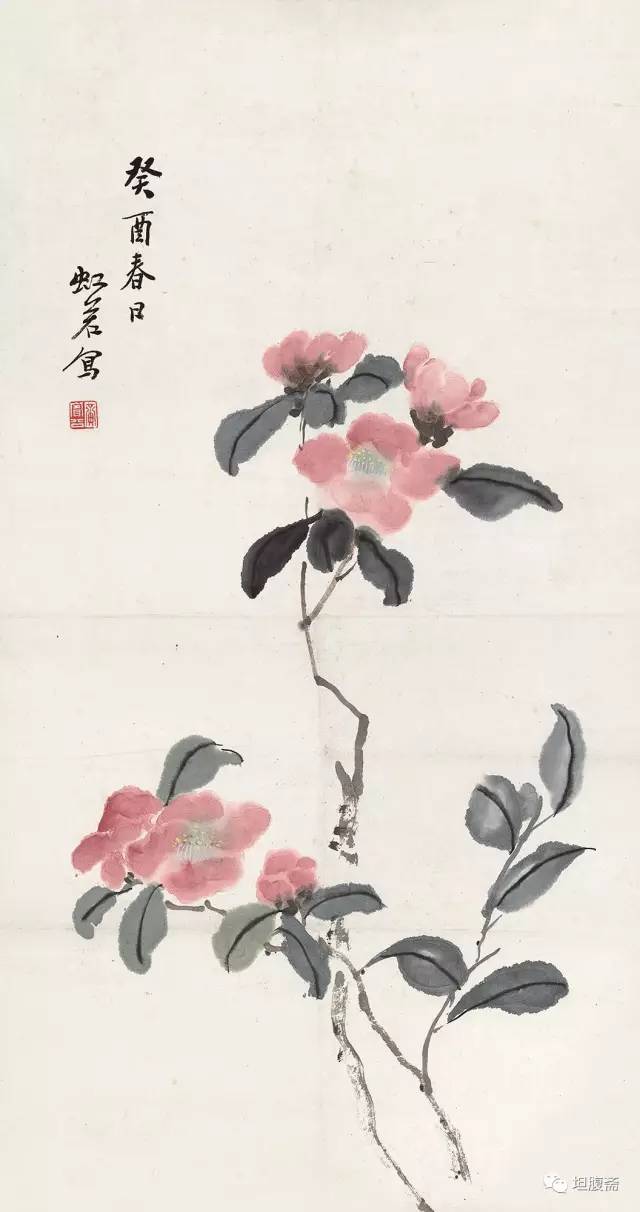 癸酉春日
虹若写
坦腹斋